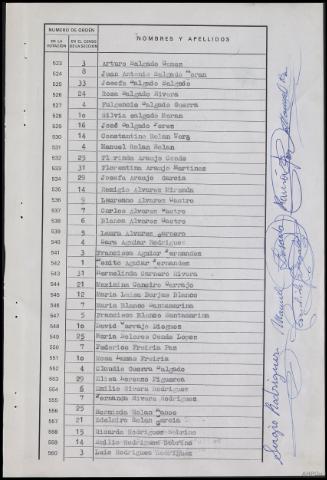 NUMERO DE ORDEN
NOMBRES Y APELLIDOS
EN LA VOTACION
EN EL CENSO DE LA SECCION
523 3 Arturo Salgado Gomez
524 8 Juan Antonio Salgado Moran
525 33 Josefa Salgado Salgado
526 24 Rosa Salgado Rivera
527 4 Fulgencio Salgado Guerra
528 1o Silvia Salgado Moran
529 16 José Salgado
530 14 Constantino Solan
531 4 Manuel Solan Solan
532 29 Florinda Araujo Conde
533 31 Florentina Araujo Martinez
534 29 Josefa Araujo Garcia
535 14 Remigio Alvarez Miranda
536 9 Laureano Alvarez Castro
537 7 Carlos Alvarez Castro
538 6 Blanca Alvarez Castro
539 5 Laura Alvarez Carnero
540 4 Sara Aguiar Rodriguez
541 3 Francisca Aguiar Fernandez
542 1 Benito Aguiar Fernandez
543 31 Hermelinda Carnero Rivera
544 21 Maximina Caneiro
545 12 Maria Luisa Borjas Blanco
546 7 Maria Blanco Santamarina
547 5 Francisco Blanco Santamarina
548 1o David Dieguez
549 25 Maria Dolores Conde Lopez
550 7 Federico Freiria Paz
551 1o Rosa Freiria
552 4 Claudio Guerra Salgado
553 29 Elisa Lorenzo Figueroa
554 6 Emilio Rivera Rodriguez
555 7 Fernanda Rivera Rodriguez
556 25 Herminda Solan
557 21 Adelaira Solan Garcia
558 15 Ricardo Rodriguez Sobrino
559 14 Emilio Rodriguez Sobrino
560 3 Luis Rodriguez Rodriguez
Sergio Rodriguez
Manuel